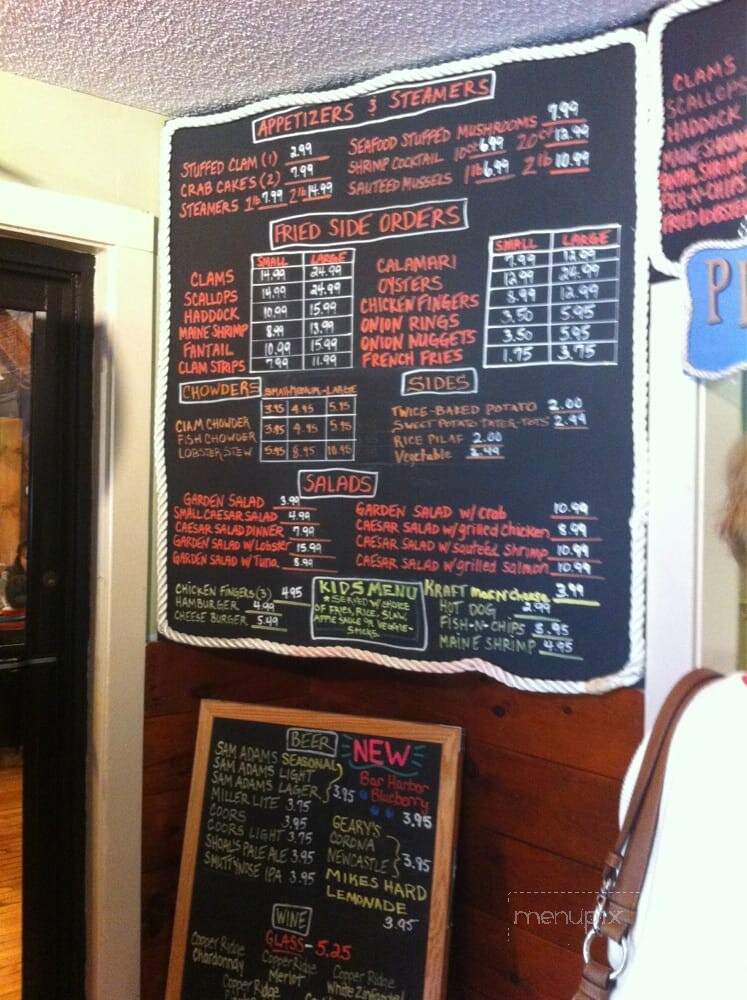 APPETIZERS & STEAMERS
STUFFED CLAM (1) 2.99
CRAB CAKES (2) 7.99
STEAMERS 1 lb 7.99 2 lb 14.99
SEAFOOD STUFFED MUSHROOMS 7.99
SHRIMP COCKTAIL 10 ct 6.99 20 ct 12.99
SAUTEED MUSSELS 1 lb 6.99 2 lb 10.99
FRIED SIDE ORDERS
SMALL LARGE
CLAMS 14.99 24.99
SCALLOPS 14.99 24.99
HADDOCK 10.99 15.99
MAINE SHRIMP 8.99 13.99
FANTAIL 10.99 15.99
CLAM STRIPS 7.99 11.99
SMALL LARGE
CALAMARI 7.99 12.99
OYSTERS 12.99 24.99
CHICKEN FINGERS 8.99 12.99
ONION RINGS 3.50 5.95
ONION NUGGETS 3.50 5.95
FRENCH FRIES 1.75 3.75
CHOWDERS SMALL MEDIUM LARGE
CLAM CHOWDER 3.95 4.95 5.95
FISH CHOWDER 3.95 4.95 5.95
LOBSTER STEW 5.95 8.95 10.95
SIDES
TWICE-BAKED POTATO 2.00
SWEET POTATO TATER-TOTS 2.99
RICE PILAF 2.00
Vegetable 2.49
SALADS
GARDEN SALAD 3.99
SMALL CAESAR SALAD 4.99
CAESAR SALAD DINNER 7.99
GARDEN SALAD w/ Lobster 15.99
GARDEN SALAD w/ Tuna 8.99
GARDEN SALAD w/ crab 10.99
CAESAR SALAD w/ grilled chicken 8.99
CAESAR SALAD w/ sauteed Shrimp 10.99
CAESAR SALAD w/ grilled Salmon 10.99
CHICKEN FINGERS (3) 4.95
HAMBURGER 4.99
CHEESE BURGER 5.49
KIDS MENU
* SERVED W/ CHOICE
OF FRIES, RICE, SLAW,
APPLE SAUCE OR VEGGIE-
STICKS.
KRAFT mac N cheese 3.99
HOT DOG 2.99
FISH-N-CHIPS 5.95
MAINE SHRIMP 4.95
CLAMS
SCALLOPS
HADDOCK
MAINE SHRIMP
FISH-N-CHIPS
FRIED LOBSTER
BEER
SAM ADAMS SEASONAL
SAM ADAMS LIGHT
SAM ADAMS LAGER 3.95
MILLER LITE 3.75
COORS 3.95
COORS LIGHT 3.75
SHOALS PALE ALE 3.95
SMUTTYNOSE IPA 3.95
NEW
Bar Harbor
Blueberry
3.95
GEARY'S
CORONA
NEWCASTLE 3.95
MIKES HARD
LEMONADE
3.95
WINE
GLASS - 5.25
Copper Ridge
Chardonnay
Copper Ridge
Merlot
Copper Ridge
White Zinfandel
Copper Ridge
menupix